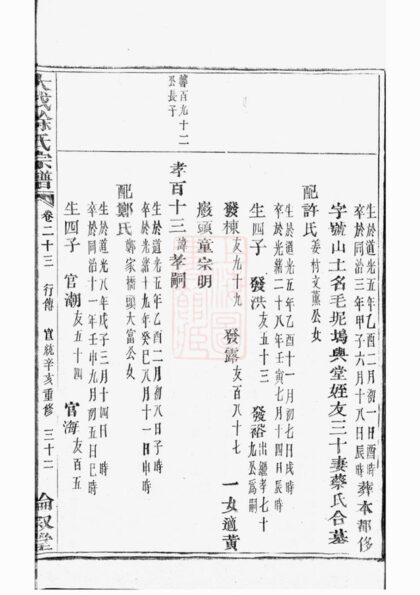 生於道光五年乙酉二月初一日酉時
卒於同治三年甲子六月十八日辰時
葬本都侈
字號山土名毛坭塢與堂姪友三十妻蔡氏合墓
配許氏
姜村文薰公女
生於道光五年乙酉十一月初七日戌時
卒於光緒二十八年壬寅七月十四日辰時
生四子 發洪 友五十三 發裕 出繼孝七十九公爲嗣
發棟 友九十九 發露 友百八十七 一女適黃
嚴頭童宗明
馨百九十二
公長子
孝百十三 諱孝嗣
生於道光五年乙酉二月初八日子時
卒於光緒十九年癸巳八月十一日申時
配鄭氏
鄭家橋頭大富公女
生於道光八年戊子三月十四日 時
卒於同治十一年壬申九月初五日巳時
生四子 官潮 友五十四 官海 友百五
徐氏宗譜
卷二十三 行傳 宣統辛亥重修 三十二
倫敘堂